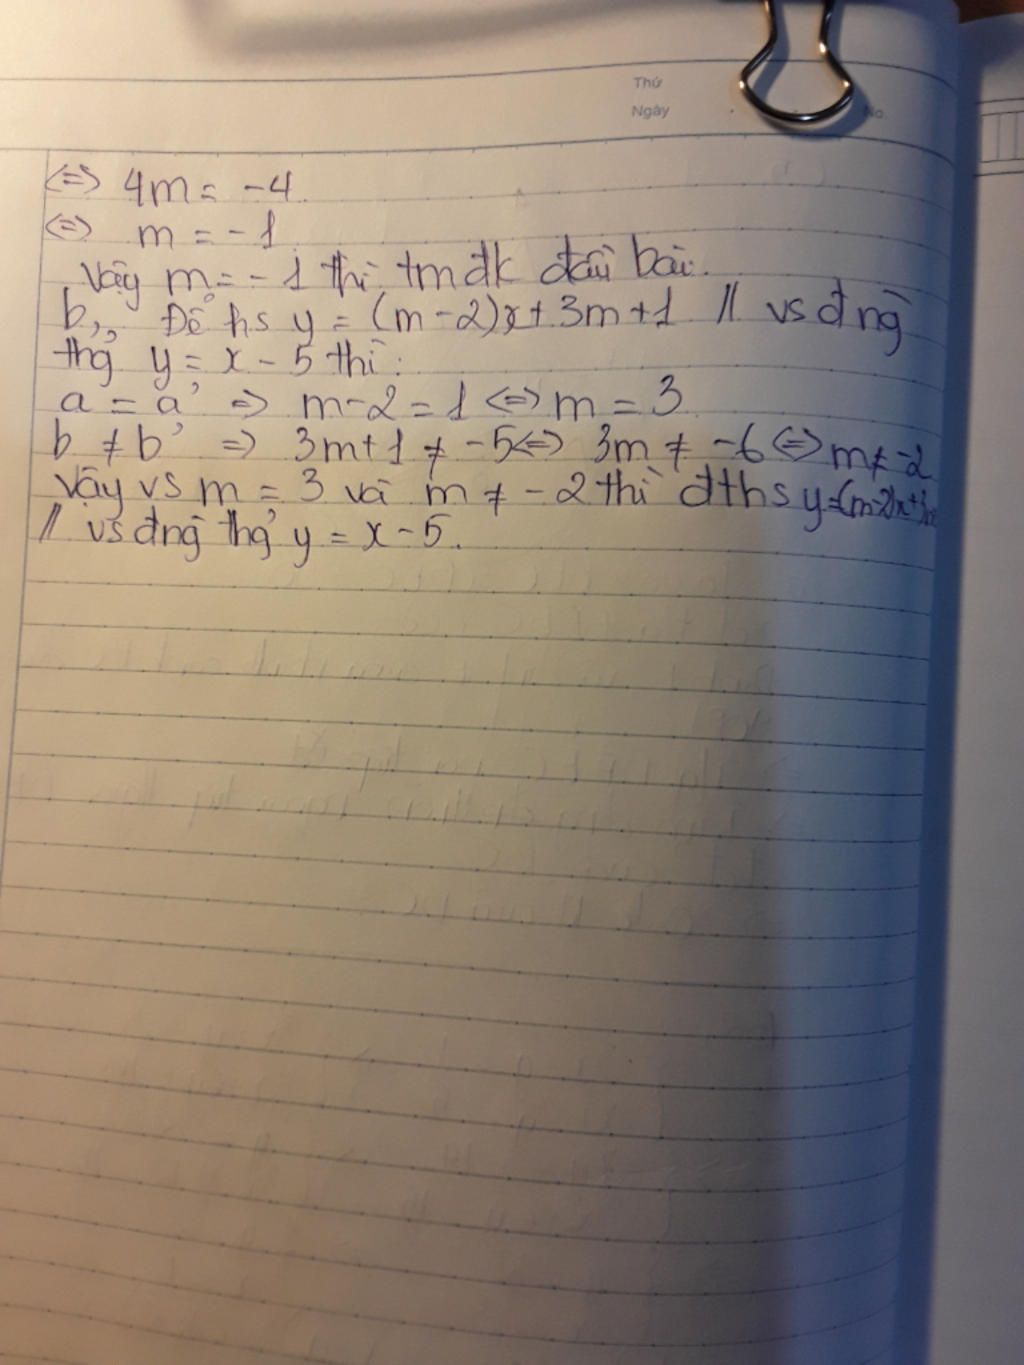 Thứ
Ngày
No.
<=> 4m = -4.
<=> m = -1
Vậy m = -1 thì tmđk đầu bài.
b,, Để hs y = (m-2)x + 3m+1 // vs đng
thg y = x - 5 thì:
a = a' => m-2 = 1 <=> m = 3
b ≠ b' => 3m+1 ≠ -5 <=> 3m ≠ -6 <=> m ≠ -2
Vậy vs m = 3 và m ≠ -2 thì đths y=(m-2)x+
// vs đng thg y = x - 5.